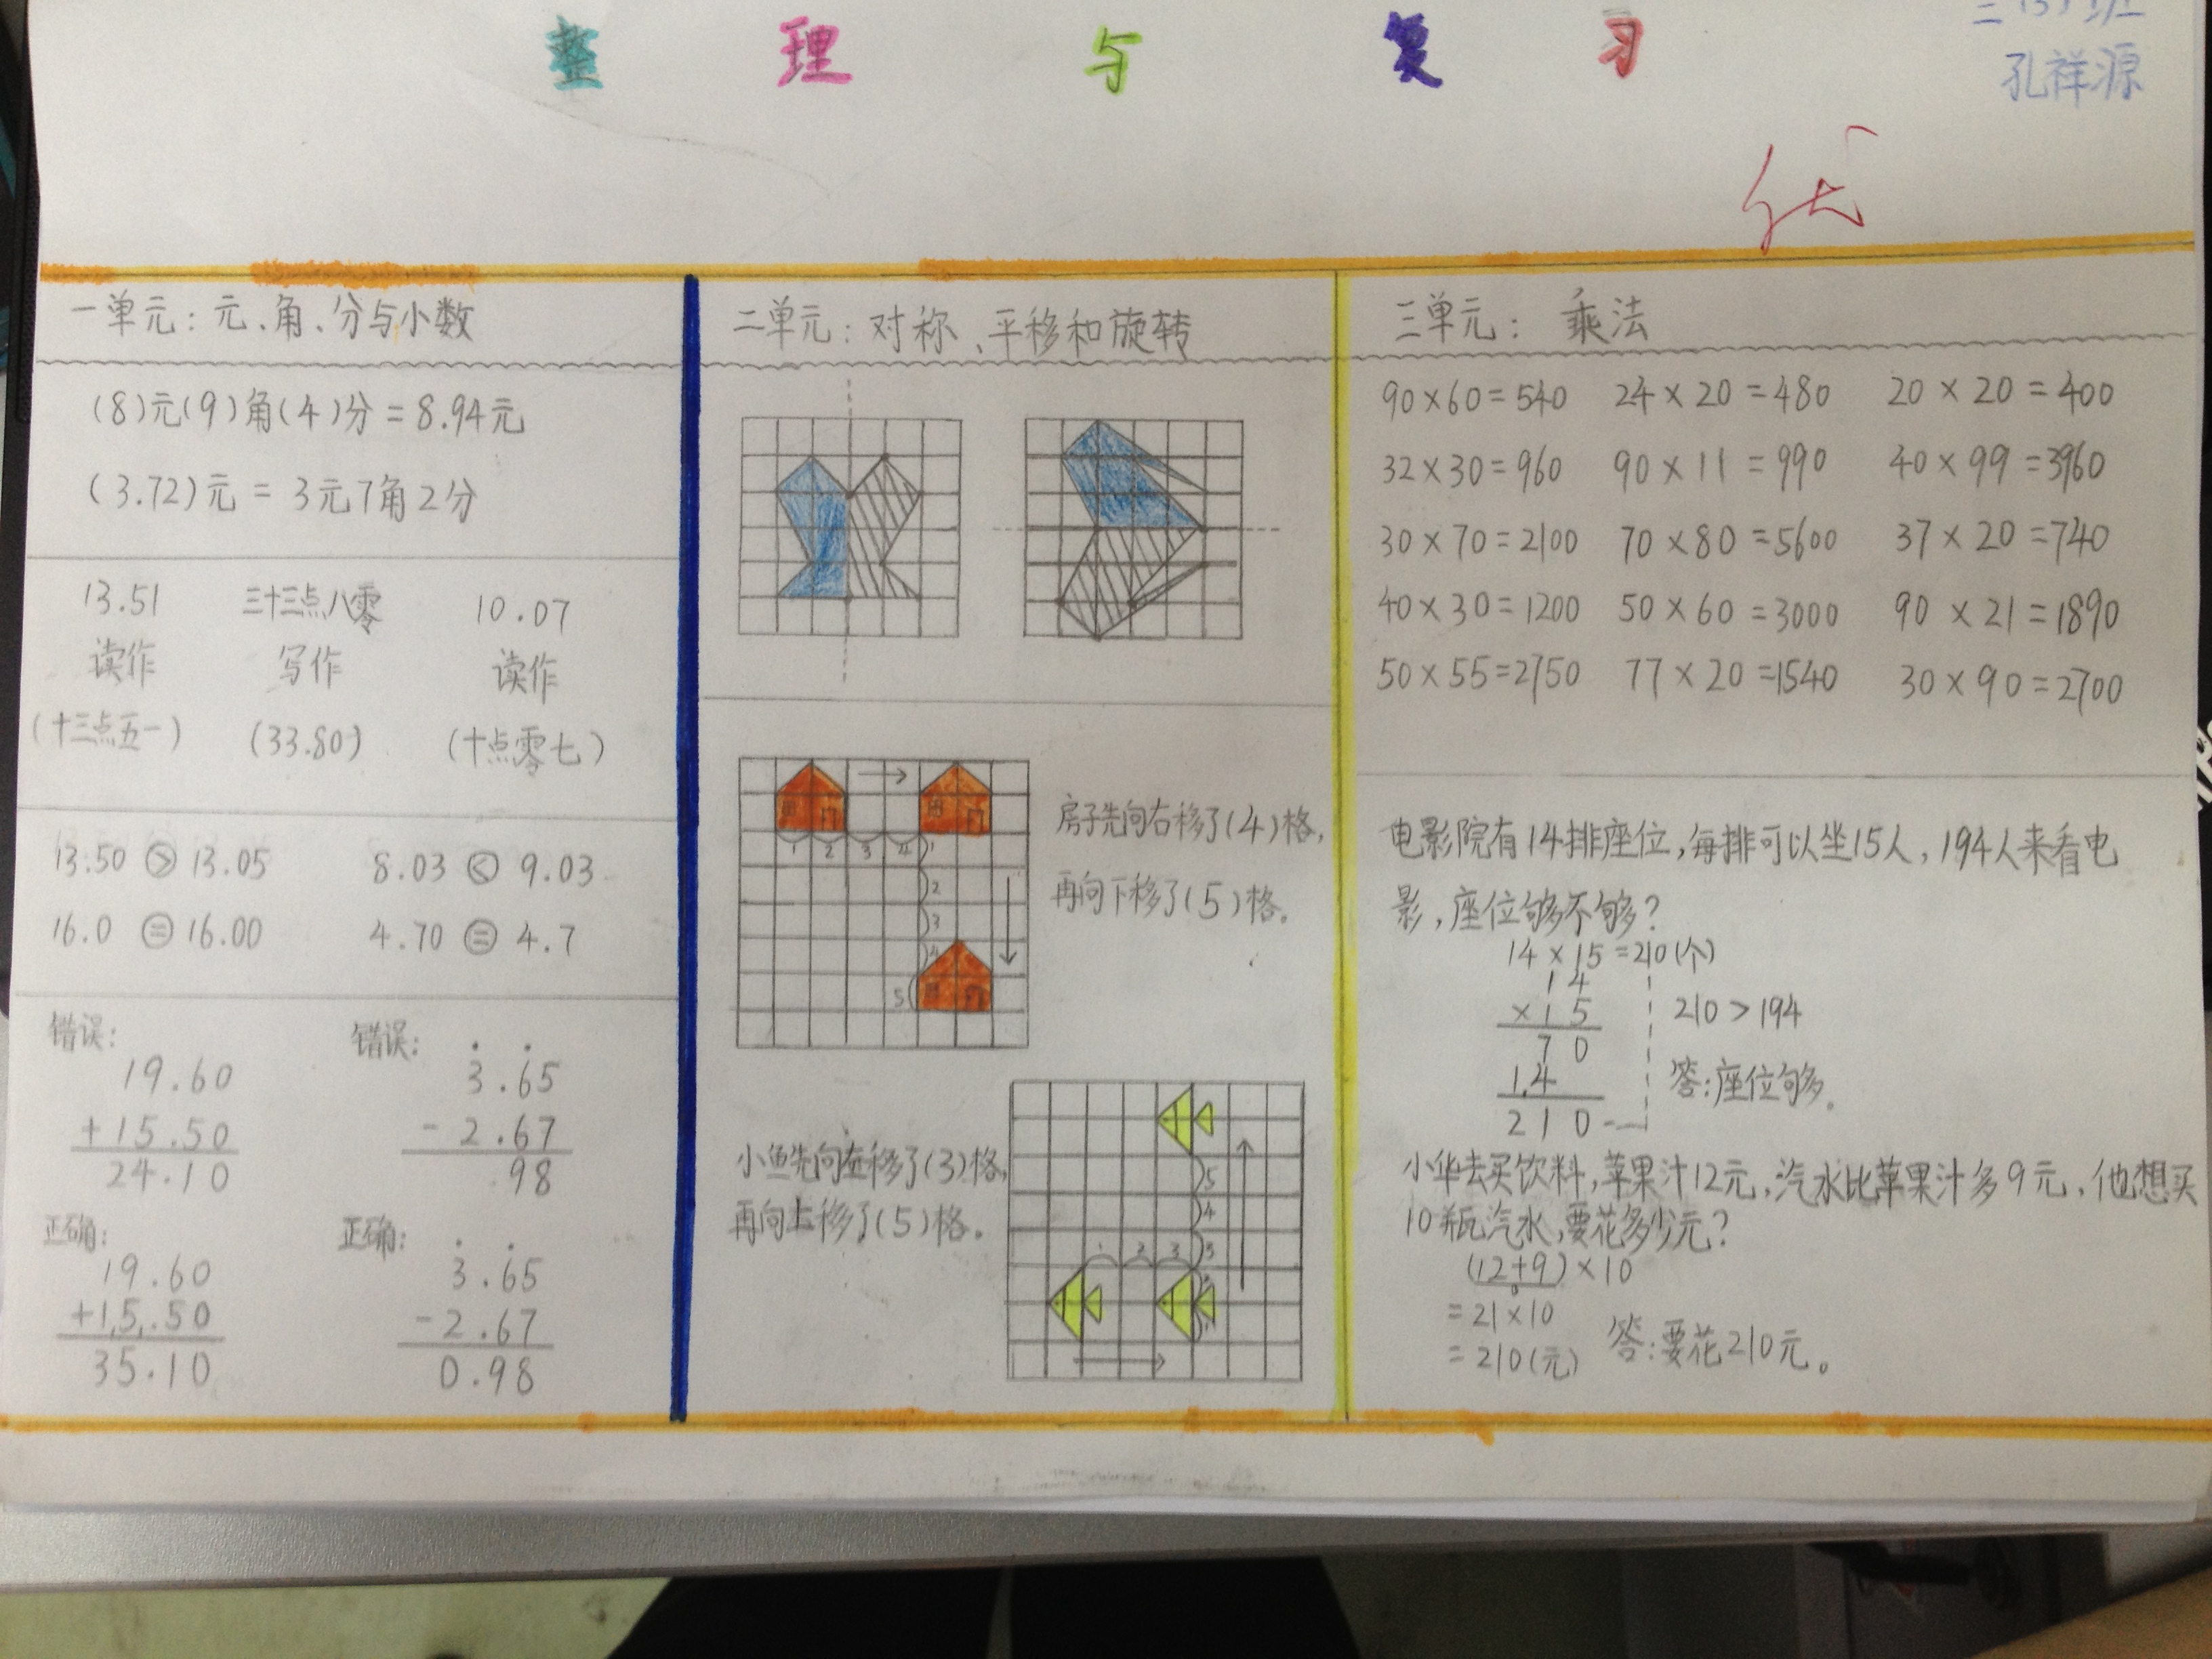 整理与复习
孔祥源
优
一单元：元、角、分与小数
(8)元(9)角(4)分=8.94元
(3.72)元=3元7角2分
13.51 三十三点八零 10.07
读作 写作 读作
(十三点五一) (33.80) (十点零七)
13.50 > 13.05 8.03 < 9.03
16.0 = 16.00 4.70 = 4.7
错误： 错误：
19.60 3.65
+15.50 -2.67
24.10 .98
正确： 正确：
19.60 3.65
+15.50 -2.67
35.10 0.98
二单元：对称、平移和旋转
房子先向右移了(4)格，
再向下移了(5)格。
1 2 3 4 1
2
3
4
5
小鱼先向在移了(3)格，
再向上移了(5)格。
5
4
1 2 3 3
三单元： 乘法
90×60=540 24×20=480 20×20=400
32×30=960 90×11=990 40×99=3960
30×70=2100 70×80=5600 37×20=740
40×30=1200 50×60=3000 90×21=1890
50×55=2750 77×20=1540 30×90=2700
电影院有14排座位，每排可以坐15人，194人来看电
影，座位够不够？
14×15=210(个)
14
×15 210>194
70
14 答：座位够。
210
小华去买饮料，苹果汁12元，汽水比苹果汁多9元，他想买
10瓶汽水，要花多少元？
(12+9)×10
=21×10
=210(元) 答：要花210元。